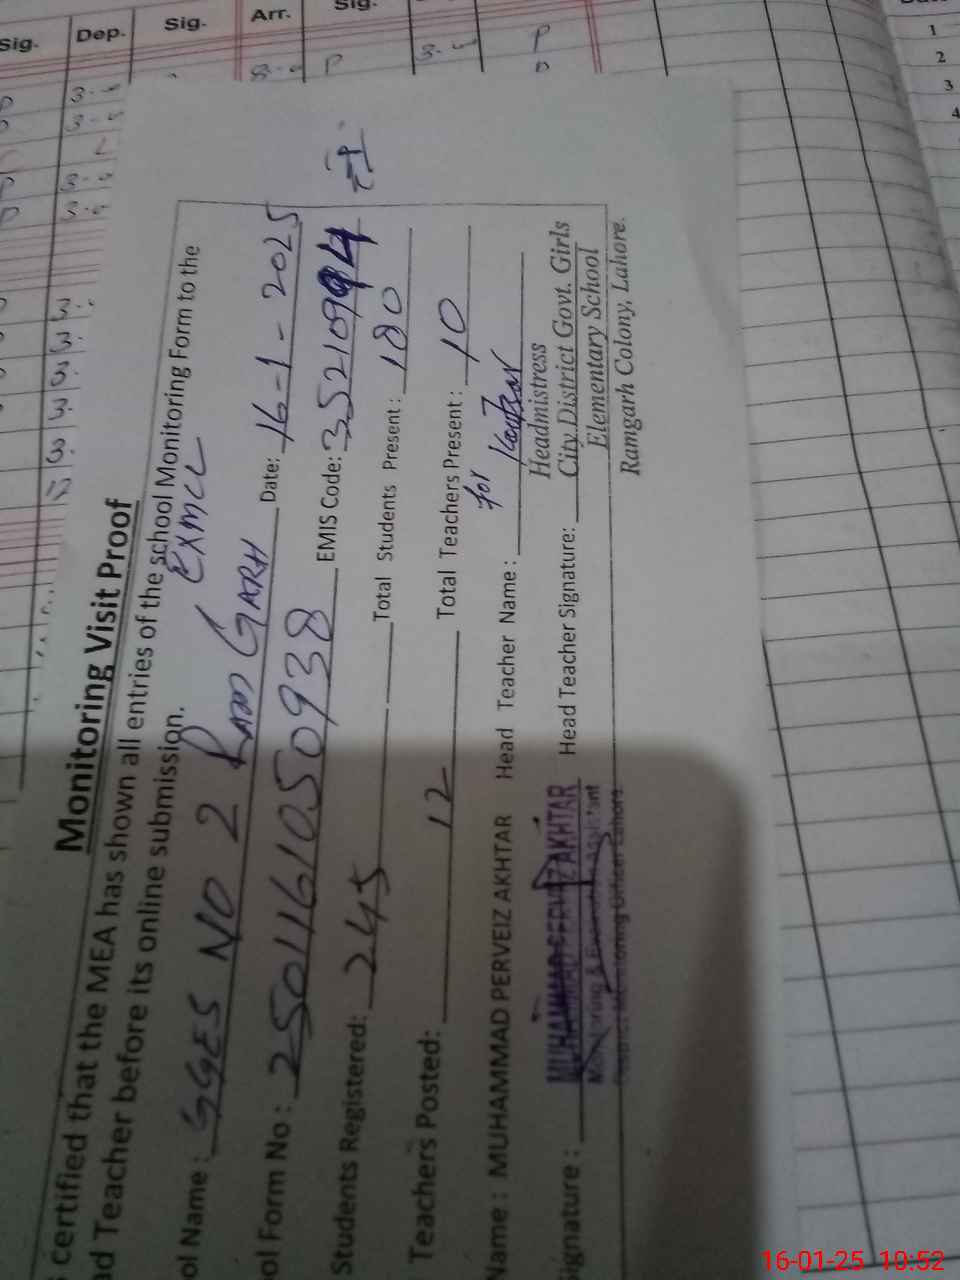 Sig.
Dep.
Sig.
Arr.
Sig.
1
2
3
4
Monitoring Visit Proof
certified that the MEA has shown all entries of the school Monitoring Form to the
ad Teacher before its online submission.
ol Name: GGES NO 2 RAM GARH Date: 16-1-2025
ol Form No: 2501161050938 EMIS Code:
Students Registered: 245 Total Students Present: 180
Teachers Posted: 12 Total Teachers Present: 10
Name: MUHAMMAD PERVEIZ AKHTAR Head Teacher Name: for Kautsar
ignature: MUHAMMAD PERVEIZ AKHTAR Head Teacher Signature:
Headmistress
City District Govt. Girls
Elementary School
Ramgarh Colony, Lahore.
16-01-25 10:52